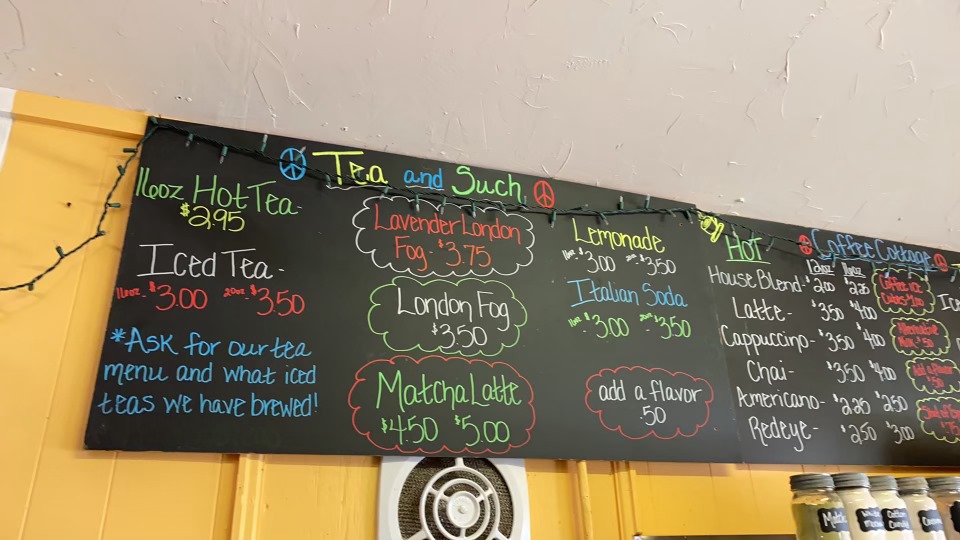 Tea and Such
16oz Hot Tea-
$2.95
Iced Tea-
16oz- $3.00 20oz- $3.50
*Ask for our tea
menu and what iced
teas we have brewed!
Lavender London
Fog- $3.75
London Fog
$3.50
Matcha Latte
$4.50 $5.00
Lemonade
16oz- $3.00 20oz- $3.50
Italian Soda
16oz- $3.00 20oz- $3.50
add a flavor
.50
Coffee Cottage
Hot
12oz 16oz
House Blend- $2.00 $2.25
Latte- $3.50 $4.00
Cappuccino- $3.50 $4.00
Chai- $3.50 $4.00
Americano- $2.25 $2.50
Redeye- $2.50 $3.00
Coffee Ice
Cubes $1.00
Alternative
Milk $.50
Add a flavor
$.50
Shot of
Matc